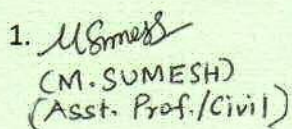 1. MSumesh
(M. SUMESH)
(Asst. Prof./Civil)